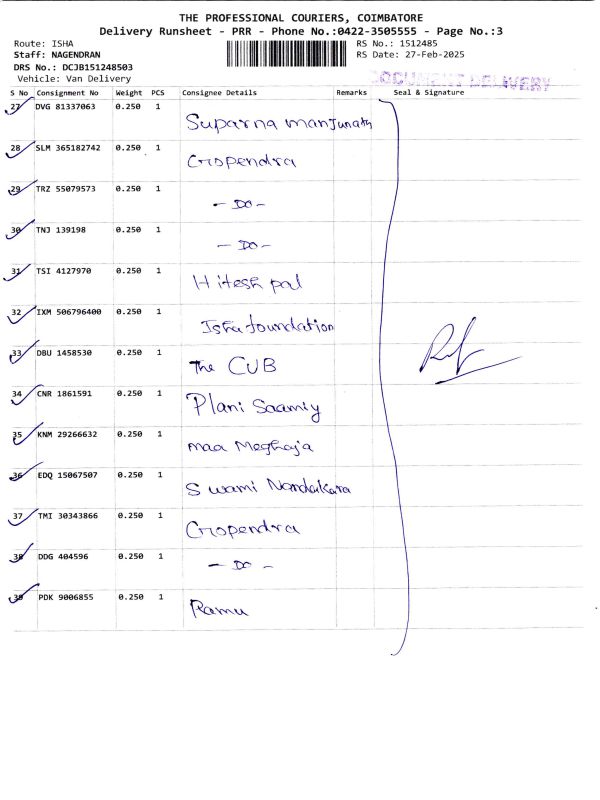 THE PROFESSIONAL COURIERS, COIMBATORE
Delivery Runsheet - PRR - Phone No.:0422-3505555 - Page No.:3
Route: ISHA RS No.: 1512485
Staff: NAGENDRAN RS Date: 27-Feb-2025
DRS No.: DCJB151248503
Vehicle: Van Delivery
DOCUMENT DELIVERY
S No Consignment No Weight PCS Consignee Details Remarks Seal & Signature
27 DVG 81337063 0.250 1
Suparna manjunath
28 SLM 365182742 0.250 1
Gropendra
29 TRZ 55079573 0.250 1
- Do -
30 TNJ 139198 0.250 1
- Do -
31 TSI 4127970 0.250 1
Hitesh pal
32 IXM 506796400 0.250 1
Isha foundation
33 DBU 1458530 0.250 1
The CUB
34 CNR 1861591 0.250 1
Plani Saamiy
35 KNM 29266632 0.250 1
maa Meghaja
36 EDQ 15067507 0.250 1
Swami Nandakara
37 TMI 30343866 0.250 1
Gropendra
38 DDG 404596 0.250 1
- Do -
39 PDK 9006855 0.250 1
Ramu